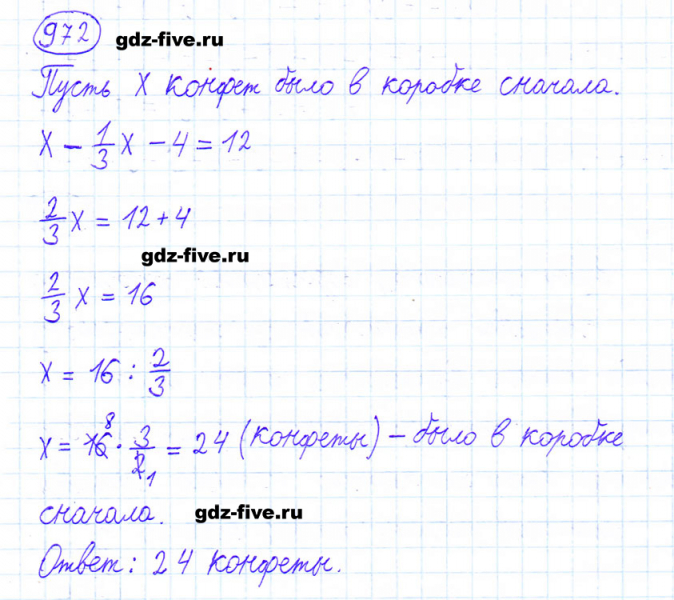 972 gdz-five.ru
Пусть x конфет было в коробке сначала.
x - 1/3 x - 4 = 12
2/3 x = 12 + 4
gdz-five.ru
2/3 x = 16
x = 16 : 2/3
x = 16 8 · 3/2 1 = 24 (конфеты) - было в коробке
сначала. gdz-five.ru
Ответ: 24 конфеты.